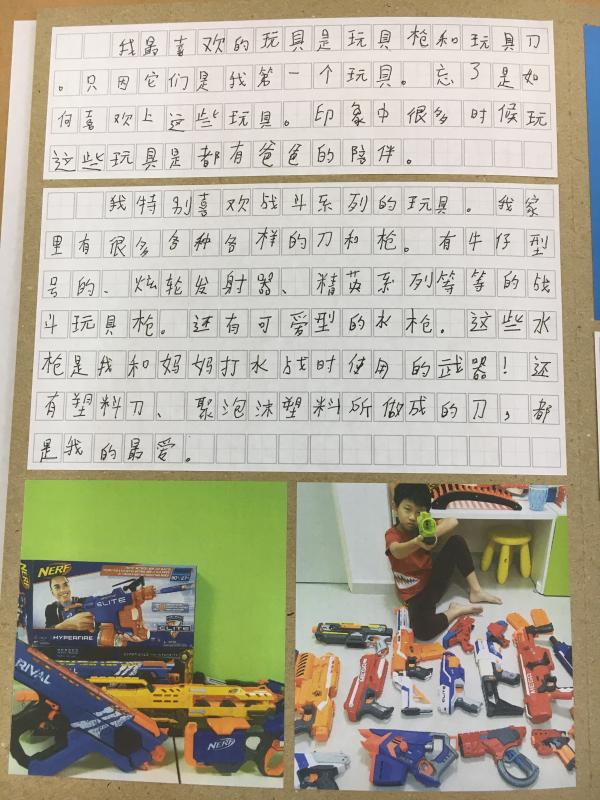 我最喜欢的玩具是玩具枪和玩具刀
。只因它们是我第一个玩具。忘了是如
何喜欢上这些玩具。印象中很多时候玩
这些玩具是都有爸爸的陪伴。
我特别喜欢战斗系列的玩具。我家
里有很多各种各样的刀和枪。有牛仔型
号的、炫轮发射器、精英系列等等的战
斗玩具枪。还有可爱型的水枪。这些水
枪是我和妈妈打水战时使用的武器！还
有塑料刀、聚泡沫塑料所做成的刀，都
是我的最爱。
NERF
ELITE
HYPERFIRE
RIVAL
NERF